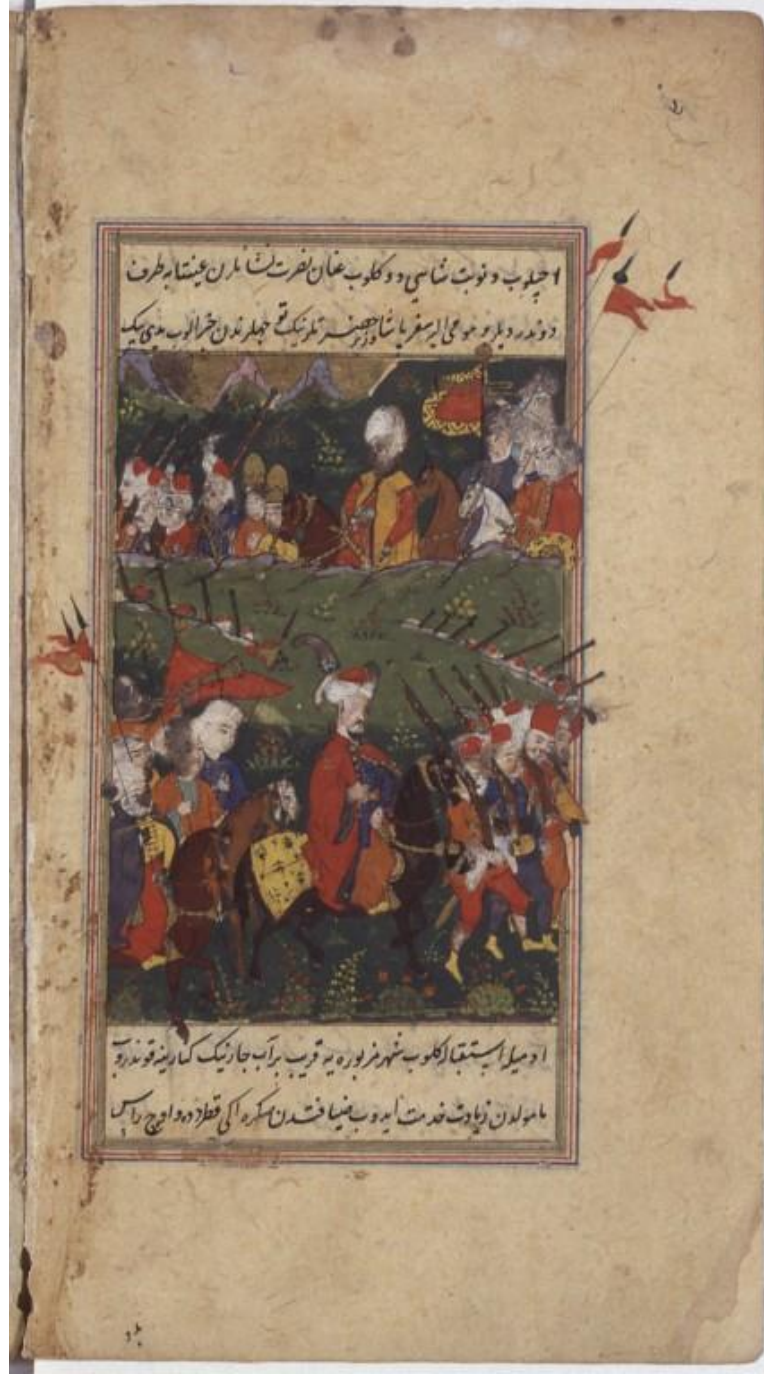 اچیلوب و نوبت شاسی دوکلوب عنان نصرت نشانلرن عینتابه طرف
دوندردیلر و مومی الیه سفر پاشا حضرتلرنیک توجهلرندن خبر الوب
اومیله استقبال کلوب شهر مزبوره یه قریب بر آب جارنیک کنارینه قوندروب
مامولدن زیادت خدمت ایدوب ضیافتدن صکره ایکی قطر دوه و اوچ راس